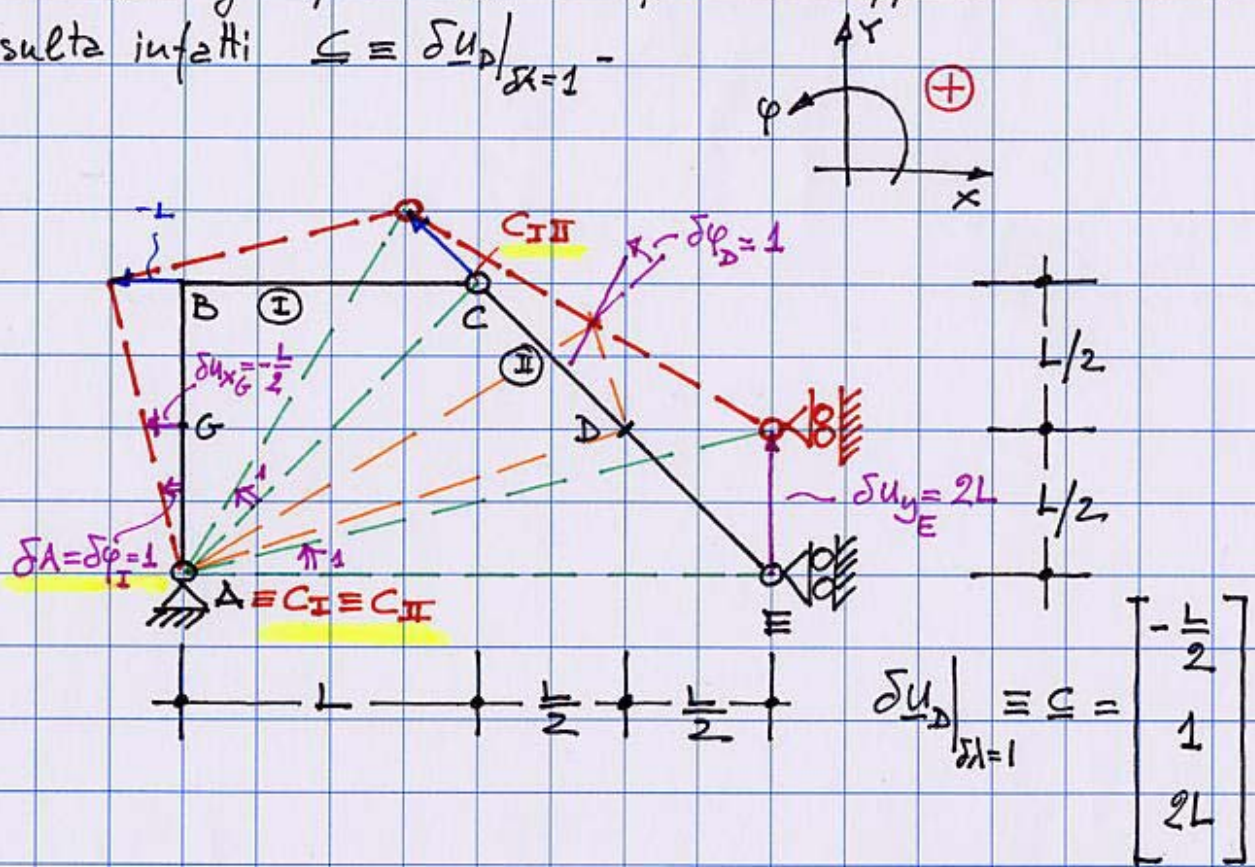 sulta infatti C ≡ δu_D|δλ=1 -
Y
φ
+
X
-L
C_I II
δφ_D=1
B
I
C
L/2
δu_xG=-L/2
II
G
D
1
δu_yE=2L
L/2
δλ=δφ_I=1
1
A≡C_I≡C_II
E
L
L/2
L/2
δu_D|δλ=1 ≡ C = [-L/2
1
2L]